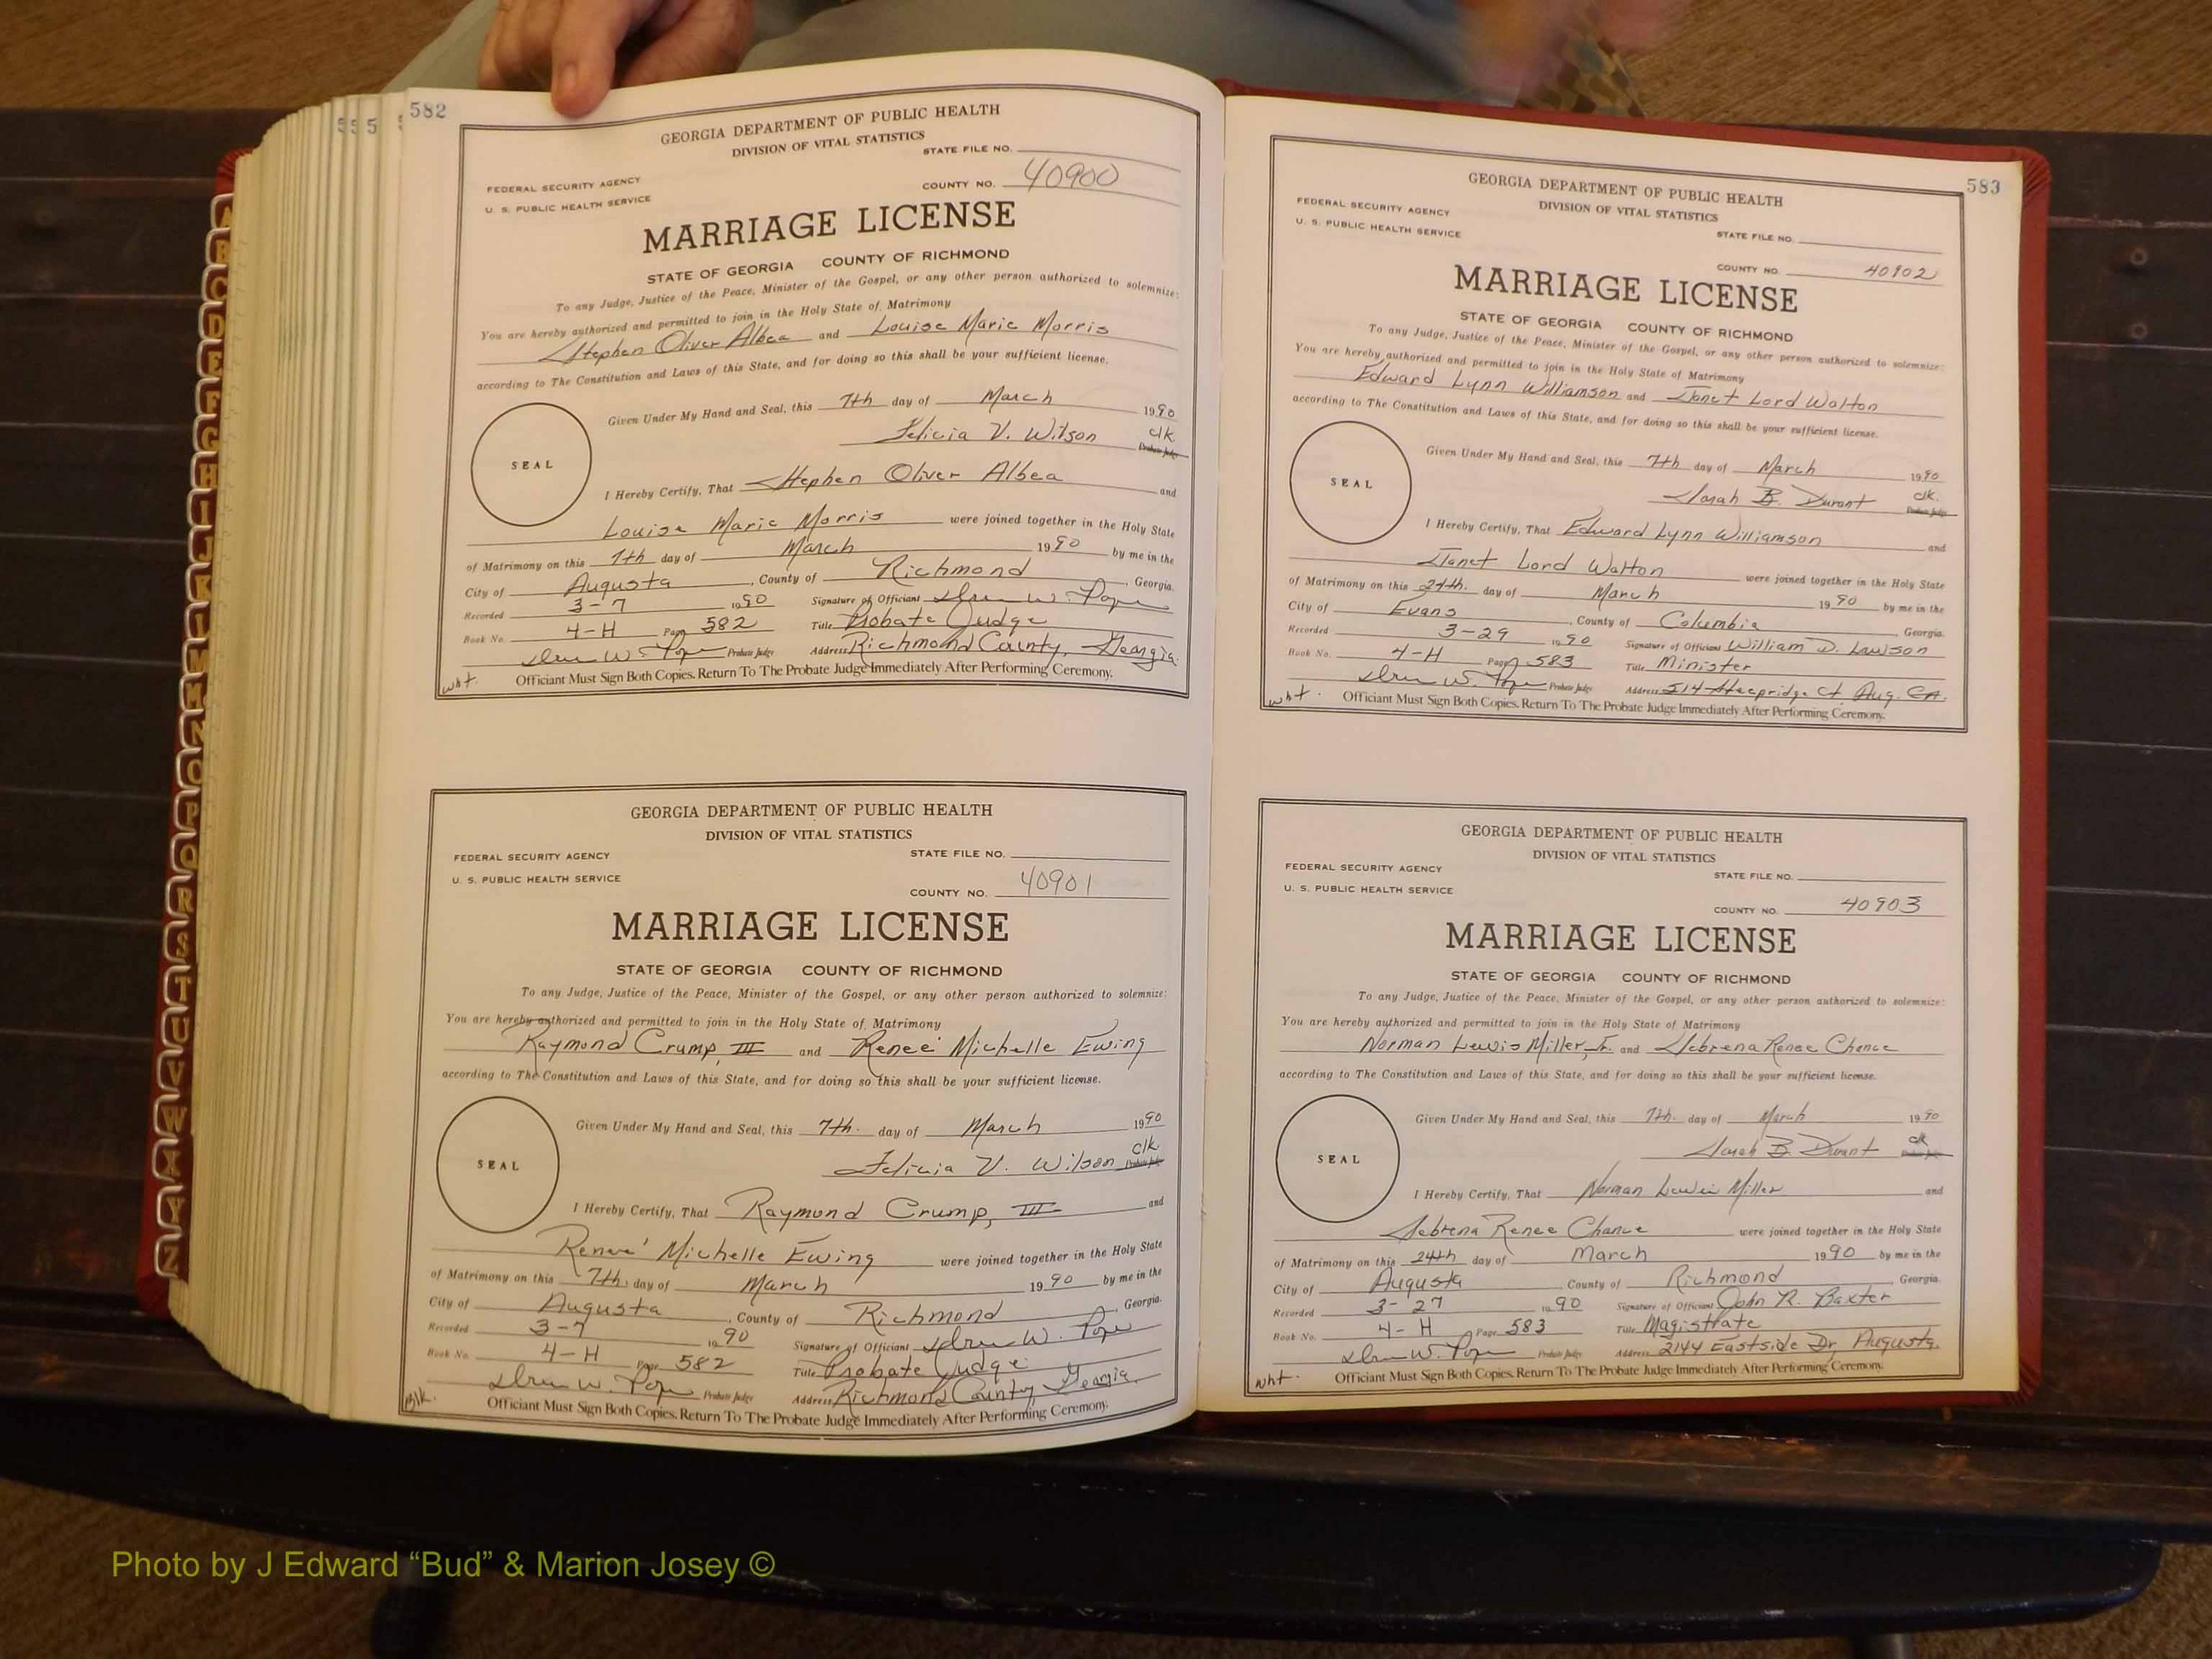 582
GEORGIA DEPARTMENT OF PUBLIC HEALTH
DIVISION OF VITAL STATISTICS
STATE FILE NO.
FEDERAL SECURITY AGENCY
U. S. PUBLIC HEALTH SERVICE
COUNTY NO. 40900
MARRIAGE LICENSE
STATE OF GEORGIA COUNTY OF RICHMOND
To any Judge, Justice of the Peace, Minister of the Gospel, or any other person authorized to solemnize:
You are hereby authorized and permitted to join in the Holy State of Matrimony
Stephen Oliver Albea and Louise Marie Morris
according to The Constitution and Laws of this State, and for doing so this shall be your sufficient license.
Given Under My Hand and Seal, this 7th day of March 1990
Felicia V. Wilson clk
Probate Judge
SEAL
I Hereby Certify, That Stephen Oliver Albea and
Louise Marie Morris were joined together in the Holy State
of Matrimony on this 7th day of March 1990 by me in the
City of Augusta, County of Richmond, Georgia.
Recorded 3-7 1990 Signature of Officiant W. Pope
Book No. 4-H Page 582 Title Probate Judge
W. Pope Probate Judge Address Richmond County, Georgia
wht. Officiant Must Sign Both Copies. Return To The Probate Judge Immediately After Performing Ceremony.
GEORGIA DEPARTMENT OF PUBLIC HEALTH
DIVISION OF VITAL STATISTICS
FEDERAL SECURITY AGENCY STATE FILE NO.
U. S. PUBLIC HEALTH SERVICE COUNTY NO. 40901
MARRIAGE LICENSE
STATE OF GEORGIA COUNTY OF RICHMOND
To any Judge, Justice of the Peace, Minister of the Gospel, or any other person authorized to solemnize:
You are hereby authorized and permitted to join in the Holy State of Matrimony
Raymond Crump, III and Reneé Michelle Ewing
according to The Constitution and Laws of this State, and for doing so this shall be your sufficient license.
Given Under My Hand and Seal, this 7th. day of March 1990
Felicia V. Wilson clk.
Probate Judge
SEAL
I Hereby Certify, That Raymond Crump, III and
Reneé Michelle Ewing were joined together in the Holy State
of Matrimony on this 7th. day of March 1990 by me in the
City of Augusta, County of Richmond, Georgia.
Recorded 3-7 1990 Signature of Officiant W. Pope
Book No. 4-H Page 582 Title Probate Judge
W. Pope Probate Judge Address Richmond County, Georgia
blk. Officiant Must Sign Both Copies. Return To The Probate Judge Immediately After Performing Ceremony.
583
GEORGIA DEPARTMENT OF PUBLIC HEALTH
DIVISION OF VITAL STATISTICS
FEDERAL SECURITY AGENCY
U. S. PUBLIC HEALTH SERVICE
STATE FILE NO.
COUNTY NO. 40902
MARRIAGE LICENSE
STATE OF GEORGIA COUNTY OF RICHMOND
To any Judge, Justice of the Peace, Minister of the Gospel, or any other person authorized to solemnize:
You are hereby authorized and permitted to join in the Holy State of Matrimony
Edward Lynn Williamson and Janet Lord Walton
according to The Constitution and Laws of this State, and for doing so this shall be your sufficient license.
Given Under My Hand and Seal, this 7th day of March 1990
Sarah B. Durant clk.
Probate Judge
SEAL
I Hereby Certify, That Edward Lynn Williamson and
Janet Lord Walton were joined together in the Holy State
of Matrimony on this 24th. day of March 1990 by me in the
City of Evans, County of Columbia, Georgia.
Recorded 3-29 1990 Signature of Officiant William D. Lawson
Book No. 4-H Page 583 Title Minister
W. Pope Probate Judge Address 514 Ct Aug. GA.
wht. Officiant Must Sign Both Copies. Return To The Probate Judge Immediately After Performing Ceremony.
GEORGIA DEPARTMENT OF PUBLIC HEALTH
DIVISION OF VITAL STATISTICS
FEDERAL SECURITY AGENCY STATE FILE NO.
U. S. PUBLIC HEALTH SERVICE
COUNTY NO. 40903
MARRIAGE LICENSE
STATE OF GEORGIA COUNTY OF RICHMOND
To any Judge, Justice of the Peace, Minister of the Gospel, or any other person authorized to solemnize:
You are hereby authorized and permitted to join in the Holy State of Matrimony
Norman Lewis Miller, Jr. and Sebrena Renee Chance
according to The Constitution and Laws of this State, and for doing so this shall be your sufficient license.
Given Under My Hand and Seal, this 7th. day of March 1990
Sarah B Durant clk
Probate Judge
SEAL
I Hereby Certify, That Norman Lewis Miller and
Sebrena Renee Chance were joined together in the Holy State
of Matrimony on this 24th day of March 1990 by me in the
City of Augusta, County of Richmond, Georgia.
Recorded 3-27 1990 Signature of Officiant John R. Baxter
Book No. 4-H Page 583 Title Magistrate
W. Pope Probate Judge Address 2144 Eastside Dr, Augusta.
wht. Officiant Must Sign Both Copies. Return To The Probate Judge Immediately After Performing Ceremony.
A
B
C
D
E
F
G
H
I
J
K
L
M
M
N
O
P
Q
R
S
T
U
V
W
X
Y
Z
Photo by J Edward “Bud” & Marion Josey ©